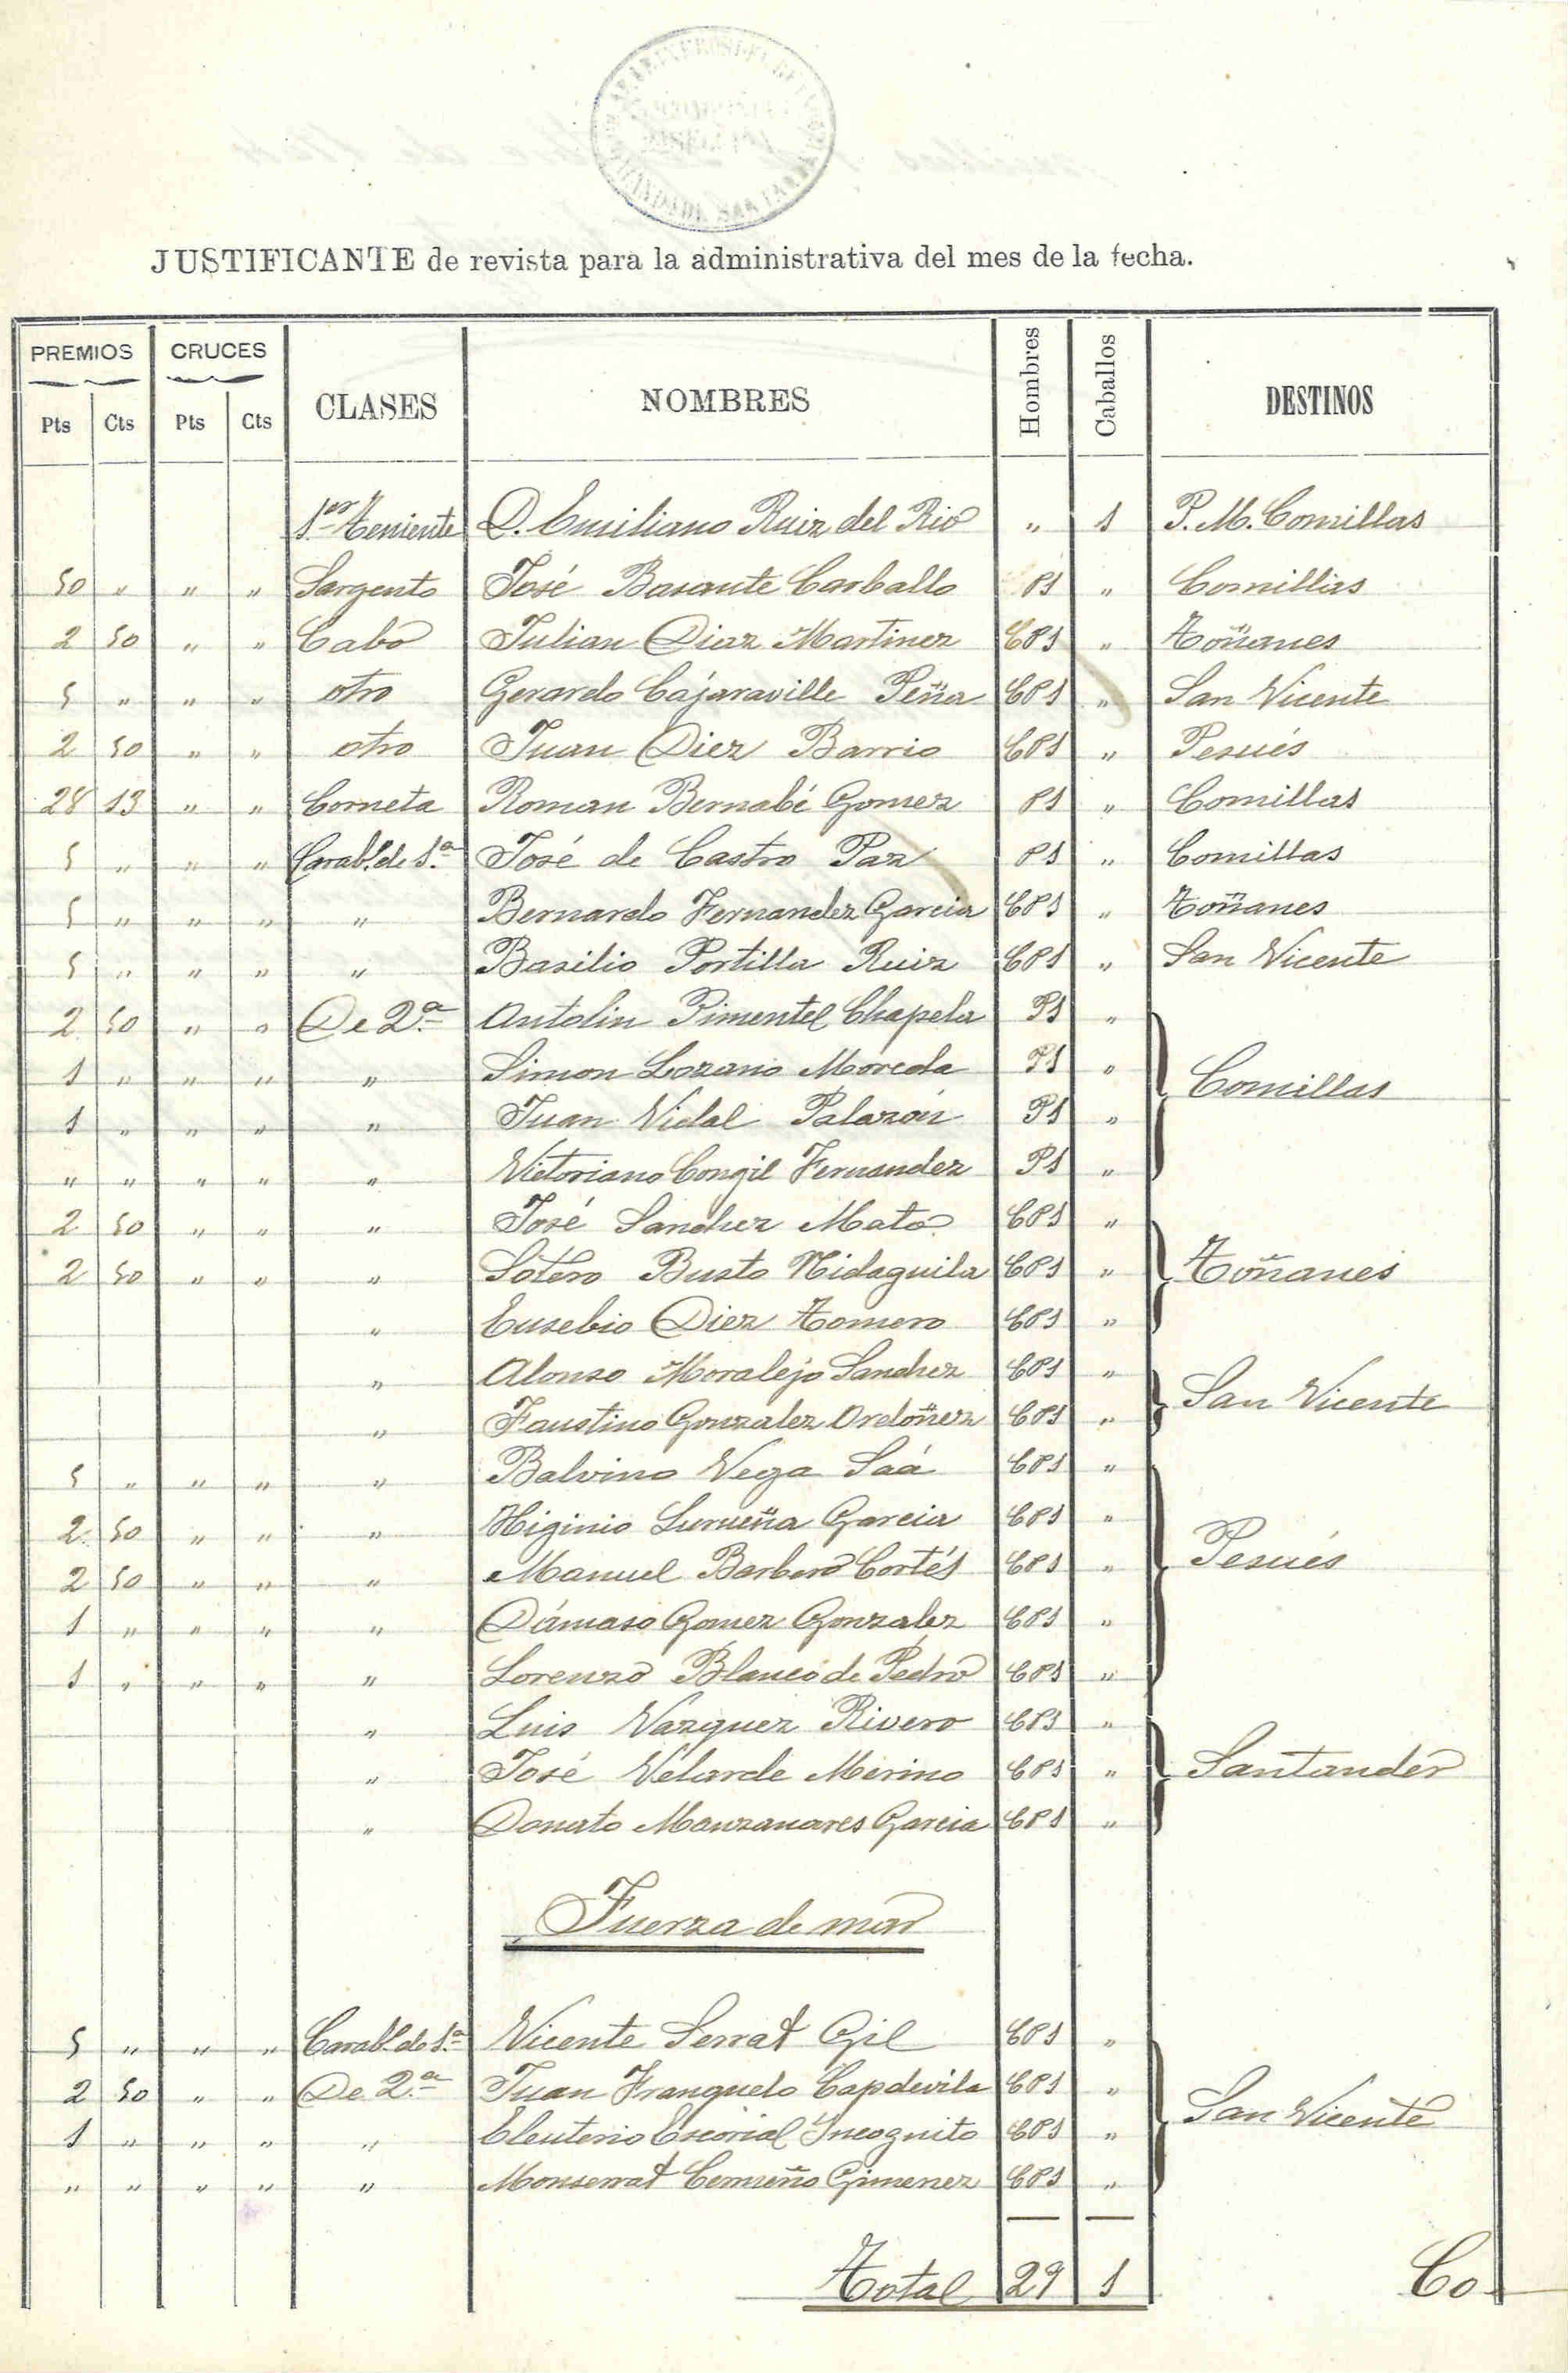 JUSTIFICANTE de revista para la administrativa del mes de la fecha.
PREMIOS CRUCES CLASES NOMBRES Hombres Caballos DESTINOS
Pts Cts Pts Cts
1er Teniente D. Emiliano Ruiz del Rio " 1 P. M. Comillas
50 " " " Sargento José Basante Carballo P1 " Comillas
2 50 " " Cabo Julian Diaz Martinez CP1 " Toñanes
5 " " " otro Gerardo Cajaraville Peña CP1 " San Vicente
2 50 " " otro Juan Diez Barrio CP1 " Pesués
28 13 " " Corneta Roman Bernabé Gomez P1 " Comillas
5 " " " Carab.s de 1.a José de Castro Paz P1 " Comillas
5 " " " " Bernardo Fernandez Garcia CP1 " Toñanes
5 " " " " Basilio Portilla Ruiz CP1 " San Vicente
2 50 " " De 2.a Antolin Pimentel Chapela P1 "
1 " " " " Simon Lozano Moreda P1 " Comillas
1 " " " " Juan Vidal Palazón P1 "
" " " " " Victoriano Congil Fernandez P1 "
2 50 " " " José Sanchez Mato CP1 "
2 50 " " " Sotero Busto Hidaguila CP1 " Toñanes
" Eusebio Diez Tomero CP1 "
" Alonso Moralejo Sanchez CP1 " San Vicente
" Faustino Gonzalez Ordoñez CP1 "
5 " " " " Balvino Vega Saá CP1 "
2 50 " " " Higinio Lurueña Garcia CP1 "
2 50 " " " Manuel Barbero Cortés CP1 " Pesués
1 " " " " Dámaso Gomez Gonzalez CP1 "
1 " " " " Lorenzo Blanco de Pedro CP1 "
" Luis Vazquez Rivero CP1 "
" José Velarde Merino CP1 " Santander
" Donato Manzanares Garcia CP1 "
Fuerza de mar
5 " " " Carab.s de 1.a Vicente Serrat Gil CP1 "
2 50 " " De 2.a Juan Franquelo Capdevila CP1 "
1 " " " " Eleuterio Escorial Incognito CP1 " San Vicente
" " " " " Monserrat Cermeño Gimenez CP1 "
Total 29 1
Co